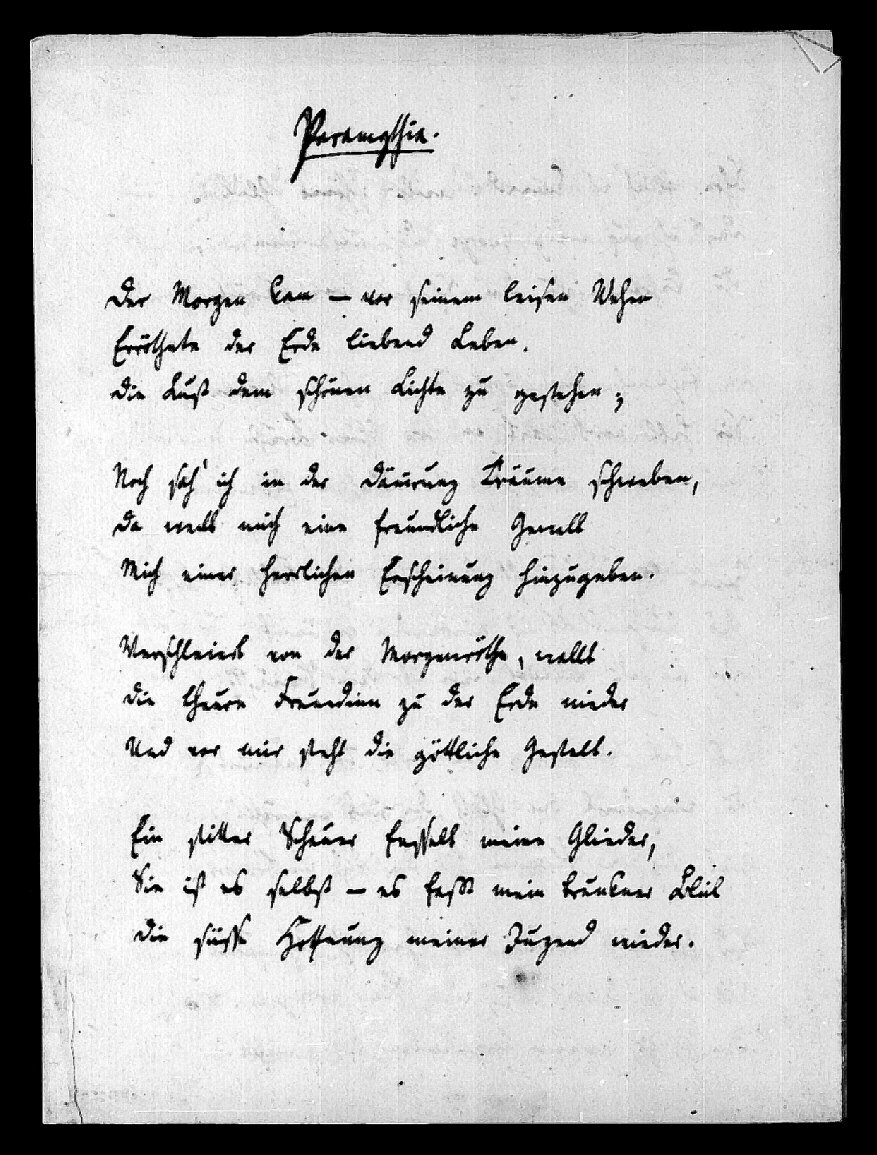 Paramythia.
Der Morgen kam — vor seinem leisen Wehen
Erröthete der Erde liebend Leben,
Die Lust dem schönen Lichte zu gestehen;
Noch sah' ich in der Däm̄rung Träume schweben,
Da weckt mich eine freundliche Gewalt
Mich einer herrlichen Erscheinung hinzugeben.
Verschleiert von der Morgenröthe, wallt
Die theure Freundinn zu der Erde nieder
Und vor mir steht die göttliche Gestalt.
Ein stiller Schauer fesselt meine Glieder,
Sie ist es selbst — es fasst mein trunkner Blik
Die süsse Hoffnung meiner Jugend wieder.